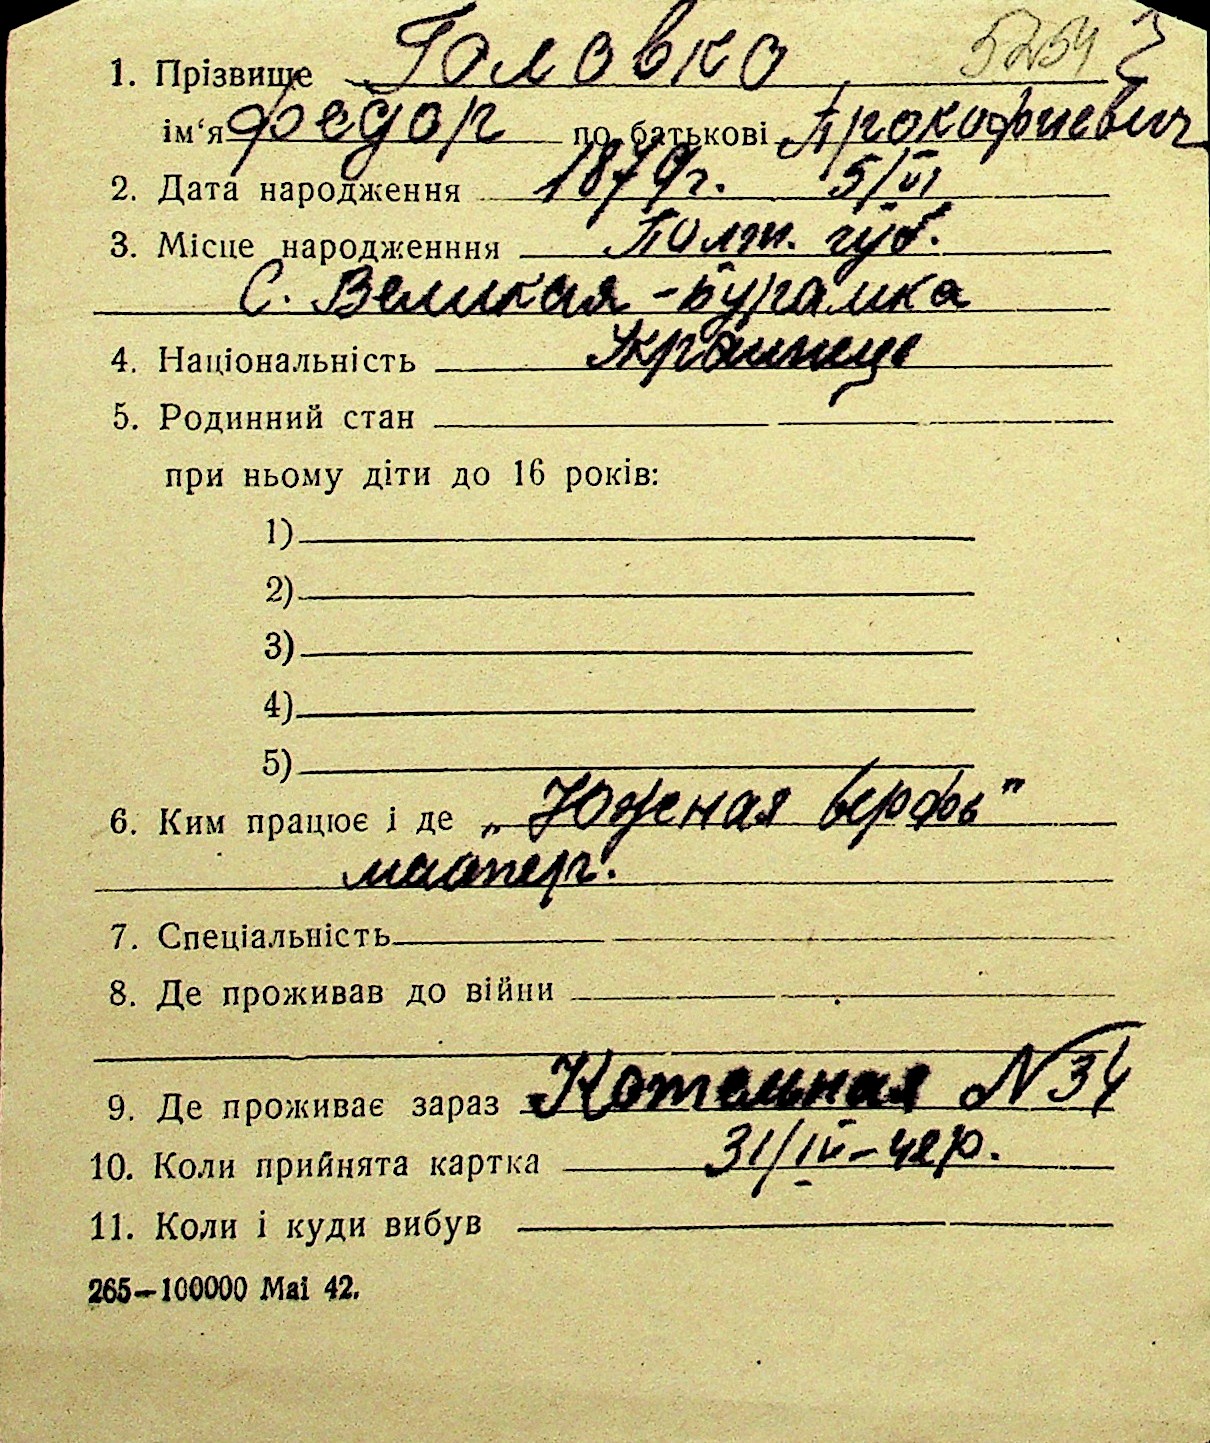 5254
1. Прізвище Головко
ім‘я Федор по батькові Прокофиевич
2. Дата народження 1879г. 5/VI
3. Місце народженння Полт. губ.
С. Великая-Бурамка
4. Національність Украинец
5. Родинний стан
при ньому діти до 16 років:
1)
2)
3)
4)
5)
6. Ким працює і де „Южная верфь"
мастер.
7. Спеціальність
8. Де проживав до війни
9. Де проживає зараз Котельная N 34
10. Коли прийнята картка 31/IV-чер.
11. Коли і куди вибув
265—100000 Mai 42.